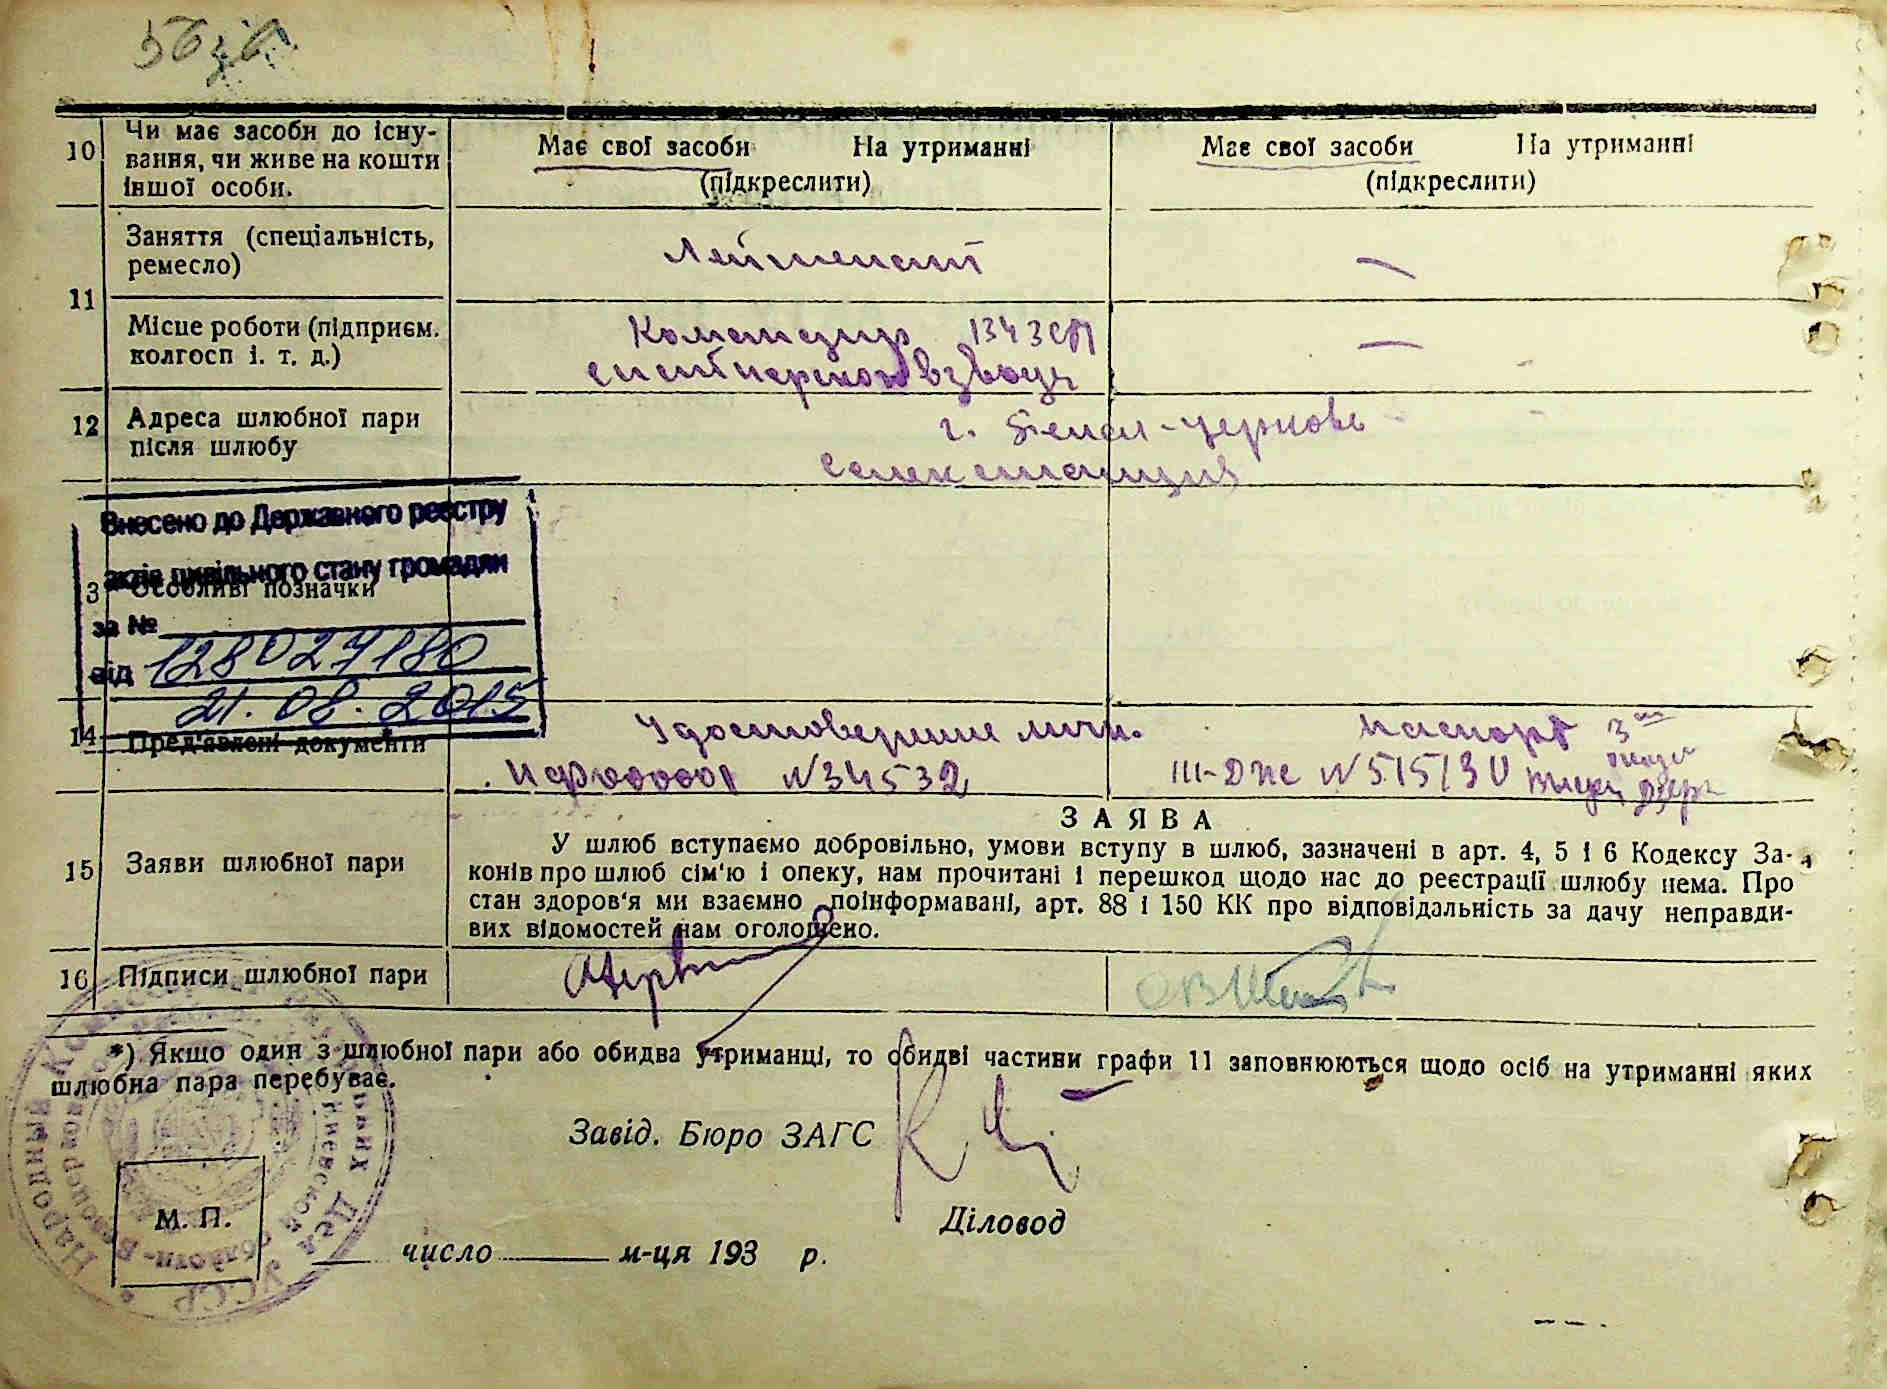 56 зв.
10 Чи має засоби до існу-
вання, чи живе на кошти
іншої особи.
Має свої засоби На утриманні
(підкреслити)
Має свої засоби На утриманні
(підкреслити)
11
Заняття (спеціальність,
ремесло)
Лейтенант
—
Місце роботи (підприєм.
колгосп і. т. д.)
Командир 1343 СП
взвода
—
12 Адреса шлюбної пари
після шлюбу
г. Белая-церковь
Селекстанция
Внесено до Державного реєстру
актів цивільного стану громадян
3 Особливі позначки
за №
128027180
від
21.08.2015
14 Пред'явлені документи
Удостоверение личн.
№ 34532
паспорт
III-ДЖ № 515130
15 Заяви шлюбної пари
ЗАЯВА
У шлюб вступаємо добровільно, умови вступу в шлюб, зазначені в арт. 4, 5 і 6 Кодексу За-
конів про шлюб сім'ю і опеку, нам прочитані і перешкод щодо нас до реєстрації шлюбу нема. Про
стан здоров'я ми взаємно поінформавані, арт. 88 і 150 КК про відповідальність за дачу неправди-
вих відомостей нам оголошено.
16 Підписи шлюбної пари
*) Якщо один з шлюбної пари або обидва утриманці, то обидві частини графи 11 заповнюються щодо осіб на утриманні яких
шлюбна пара перебуває.
Завід. Бюро ЗАГС
Діловод
М. П.
число м-ця 193 р.